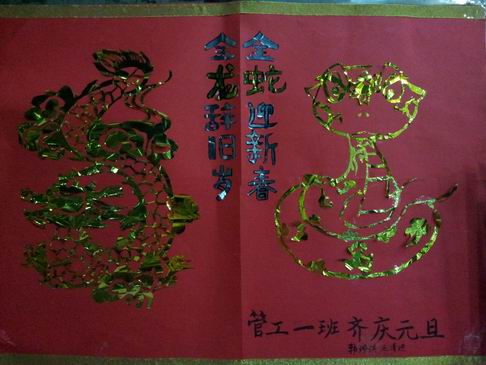 金蛇迎新春
金龙辞旧岁
管工一班 齐庆元旦